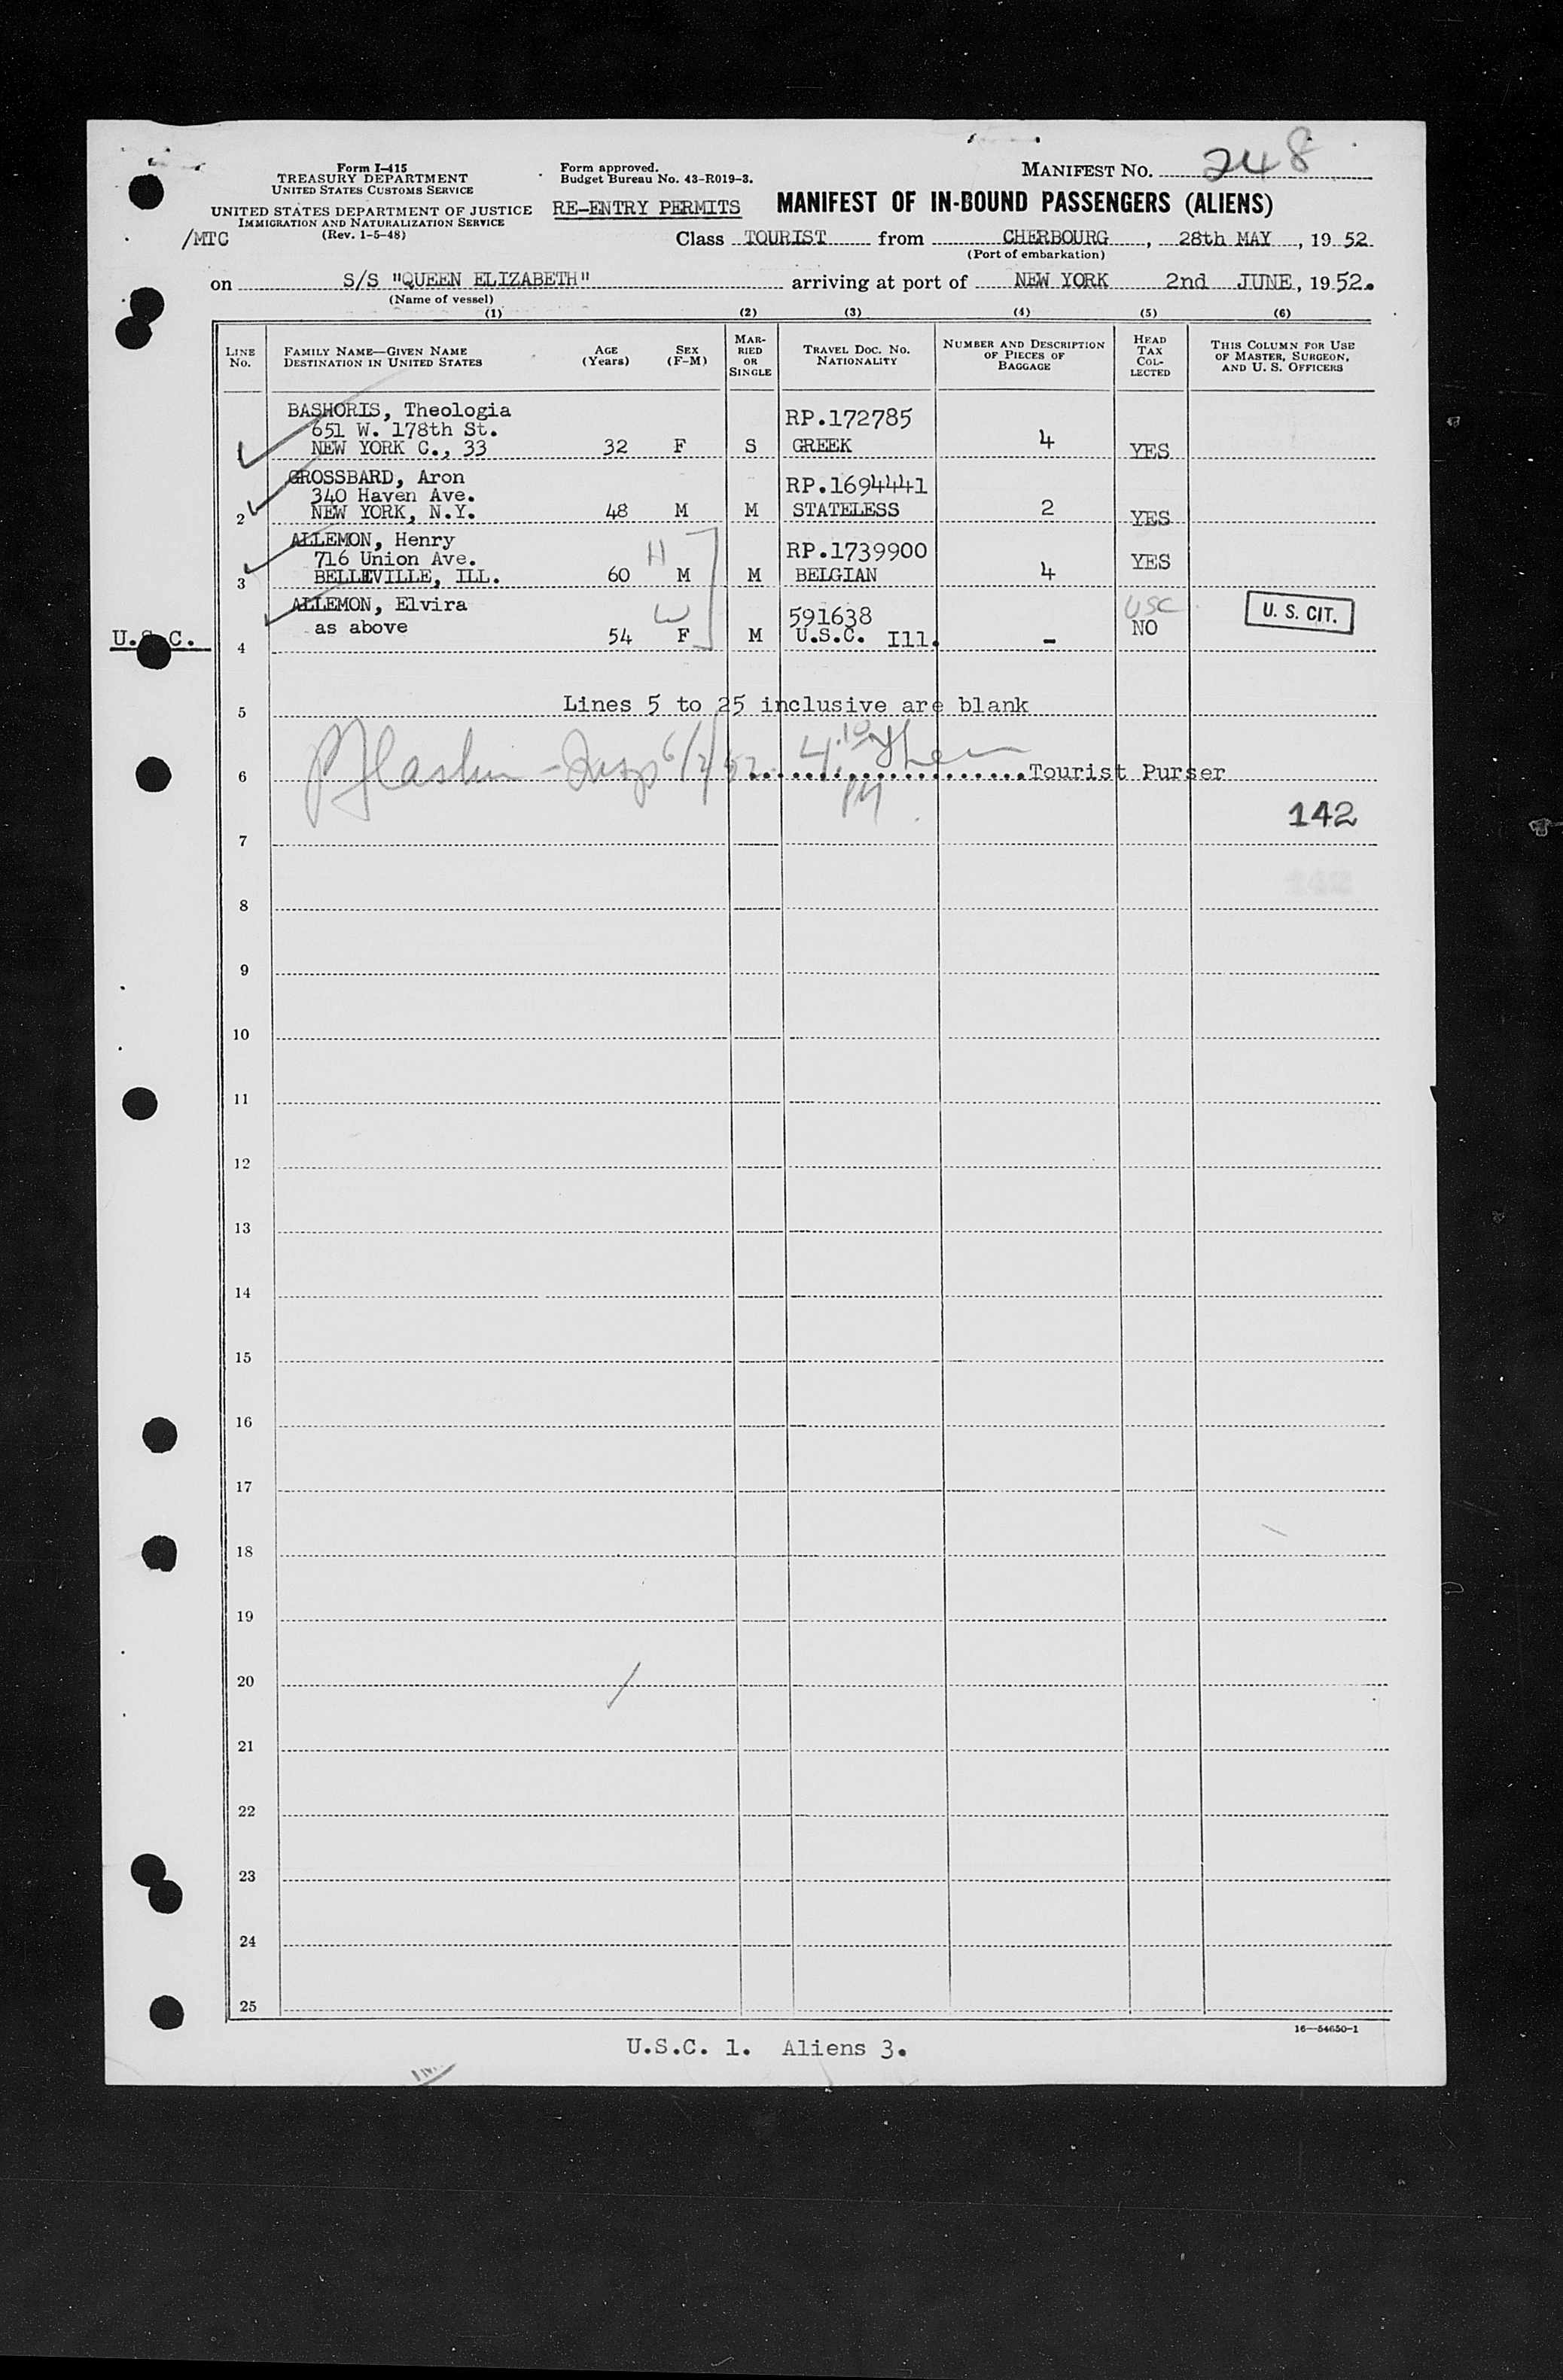 Form I-415
TREASURY DEPARTMENT
UNITED STATES CUSTOMS SERVICE
UNITED STATES DEPARTMENT OF JUSTICE
IMMIGRATION AND NATURALIZATION SERVICE
(Rev. 1-5-48)
/MTC
Form approved.
Budget Bureau No. 43-R019-3.
RE-ENTRY PERMITS
MANIFEST NO. 248
MANIFEST OF IN-BOUND PASSENGERS (ALIENS)
Class TOURIST from CHERBOURG, 28th MAY, 19 52
(Port of embarkation)
on S/S "QUEEN ELIZABETH" arriving at port of NEW YORK 2nd JUNE, 19 52.
(Name of vessel)
(1) (2) (3) (4) (5) (6)
LINE No. FAMILY NAME—GIVEN NAME DESTINATION IN UNITED STATES AGE (Years) SEX (F-M) MARRIED OR SINGLE TRAVEL DOC. NO. NATIONALITY NUMBER AND DESCRIPTION OF PIECES OF BAGGAGE HEAD TAX COLLECTED THIS COLUMN FOR USE OF MASTER, SURGEON, AND U. S. OFFICERS
BASHORIS, Theologia RP.172785
651 W. 178th St.
NEW YORK C., 33 32 F S GREEK 4 YES
GROSSBARD, Aron RP.1694441
340 Haven Ave.
2 NEW YORK, N.Y. 48 M M STATELESS 2 YES
ALLEMON, Henry H RP.1739900 YES
716 Union Ave.
3 BELLEVILLE, ILL. 60 M M BELGIAN 4
ALLEMON, Elvira W 591638 USC U. S. CIT.
U.S.C. 4 as above 54 F M U.S.C. Ill. - NO
5 Lines 5 to 25 inclusive are blank
6 6/2/52 Tourist Purser
142
7
8
9
10
11
12
13
14
15
16
17
18
19
20
21
22
23
24
25
16—54650-1
U.S.C. 1. Aliens 3.